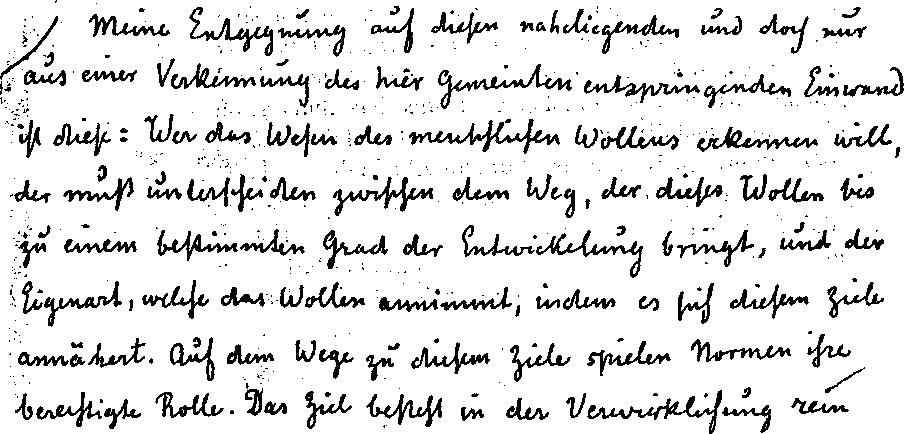 Meine Entgegnung auf diesen naheliegenden und doch nur
aus einer Verkennung des hier Gemeinten entspringenden Einwand
ist diese: Wer das Wesen des menschlichen Wollens erkennen will,
der muß unterscheiden zwischen dem Weg, der dieses Wollen bis
zu einem bestimmten Grad der Entwickelung bringt, und der
Eigenart, welche das Wollen annimmt, indem es sich diesem Ziele
annähert. Auf dem Wege zu diesem Ziele spielen Normen ihre
berechtigte Rolle. Das Ziel besteht in der Verwirklichung rein